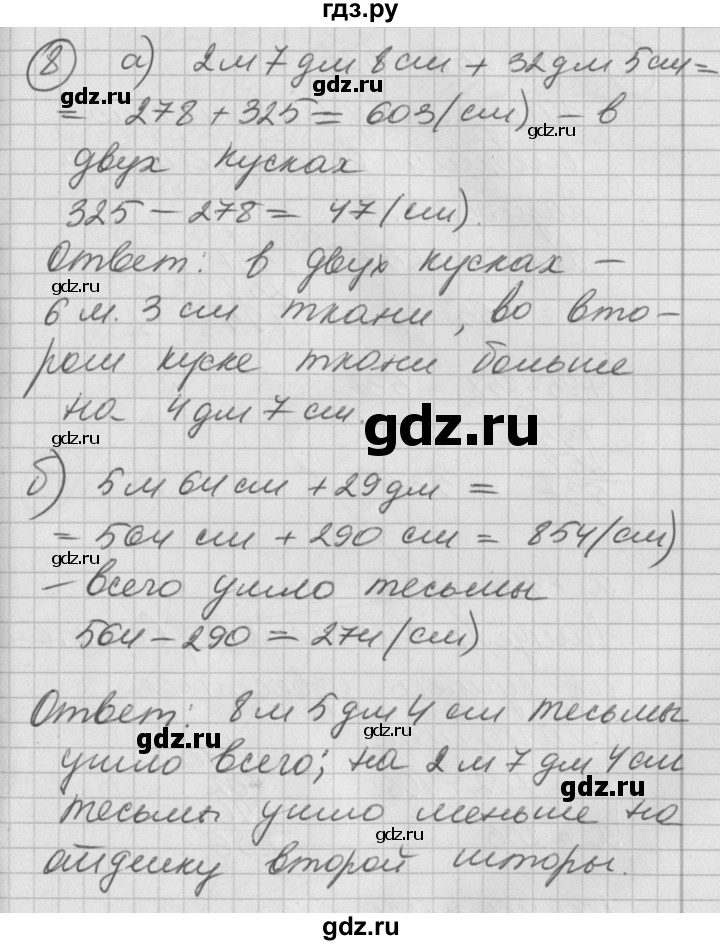 гдз.ру
8 а) 2 м 7 дм 8 см + 32 дм 5 см =
= 278 + 325 = 603 (см) – в
двух кусках
325 – 278 = 47 (см).
Ответ: в двух кусках –
6 м. 3 см ткани, во вто-
ром куске ткани больше
на 4 дм 7 см.
б) 5 м 64 см + 29 дм =
= 564 см + 290 см = 854 (см)
– всего ушло тесьмы
564 – 290 = 274 (см)
Ответ: 8 м 5 дм 4 см тесьмы
ушло всего; на 2 м 7 дм 4 см
тесьмы ушло меньше на
отделку второй шторы.
gdz.ru
gdz.ru
gdz.ru
gdz.ru
gdz.ru
gdz.ru
gdz.ru
gdz.ru
gdz.ru
gdz.ru
gdz.ru
gdz.ru